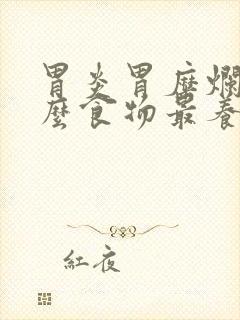 胃炎胃糜爛
麼食物最養
紅夜